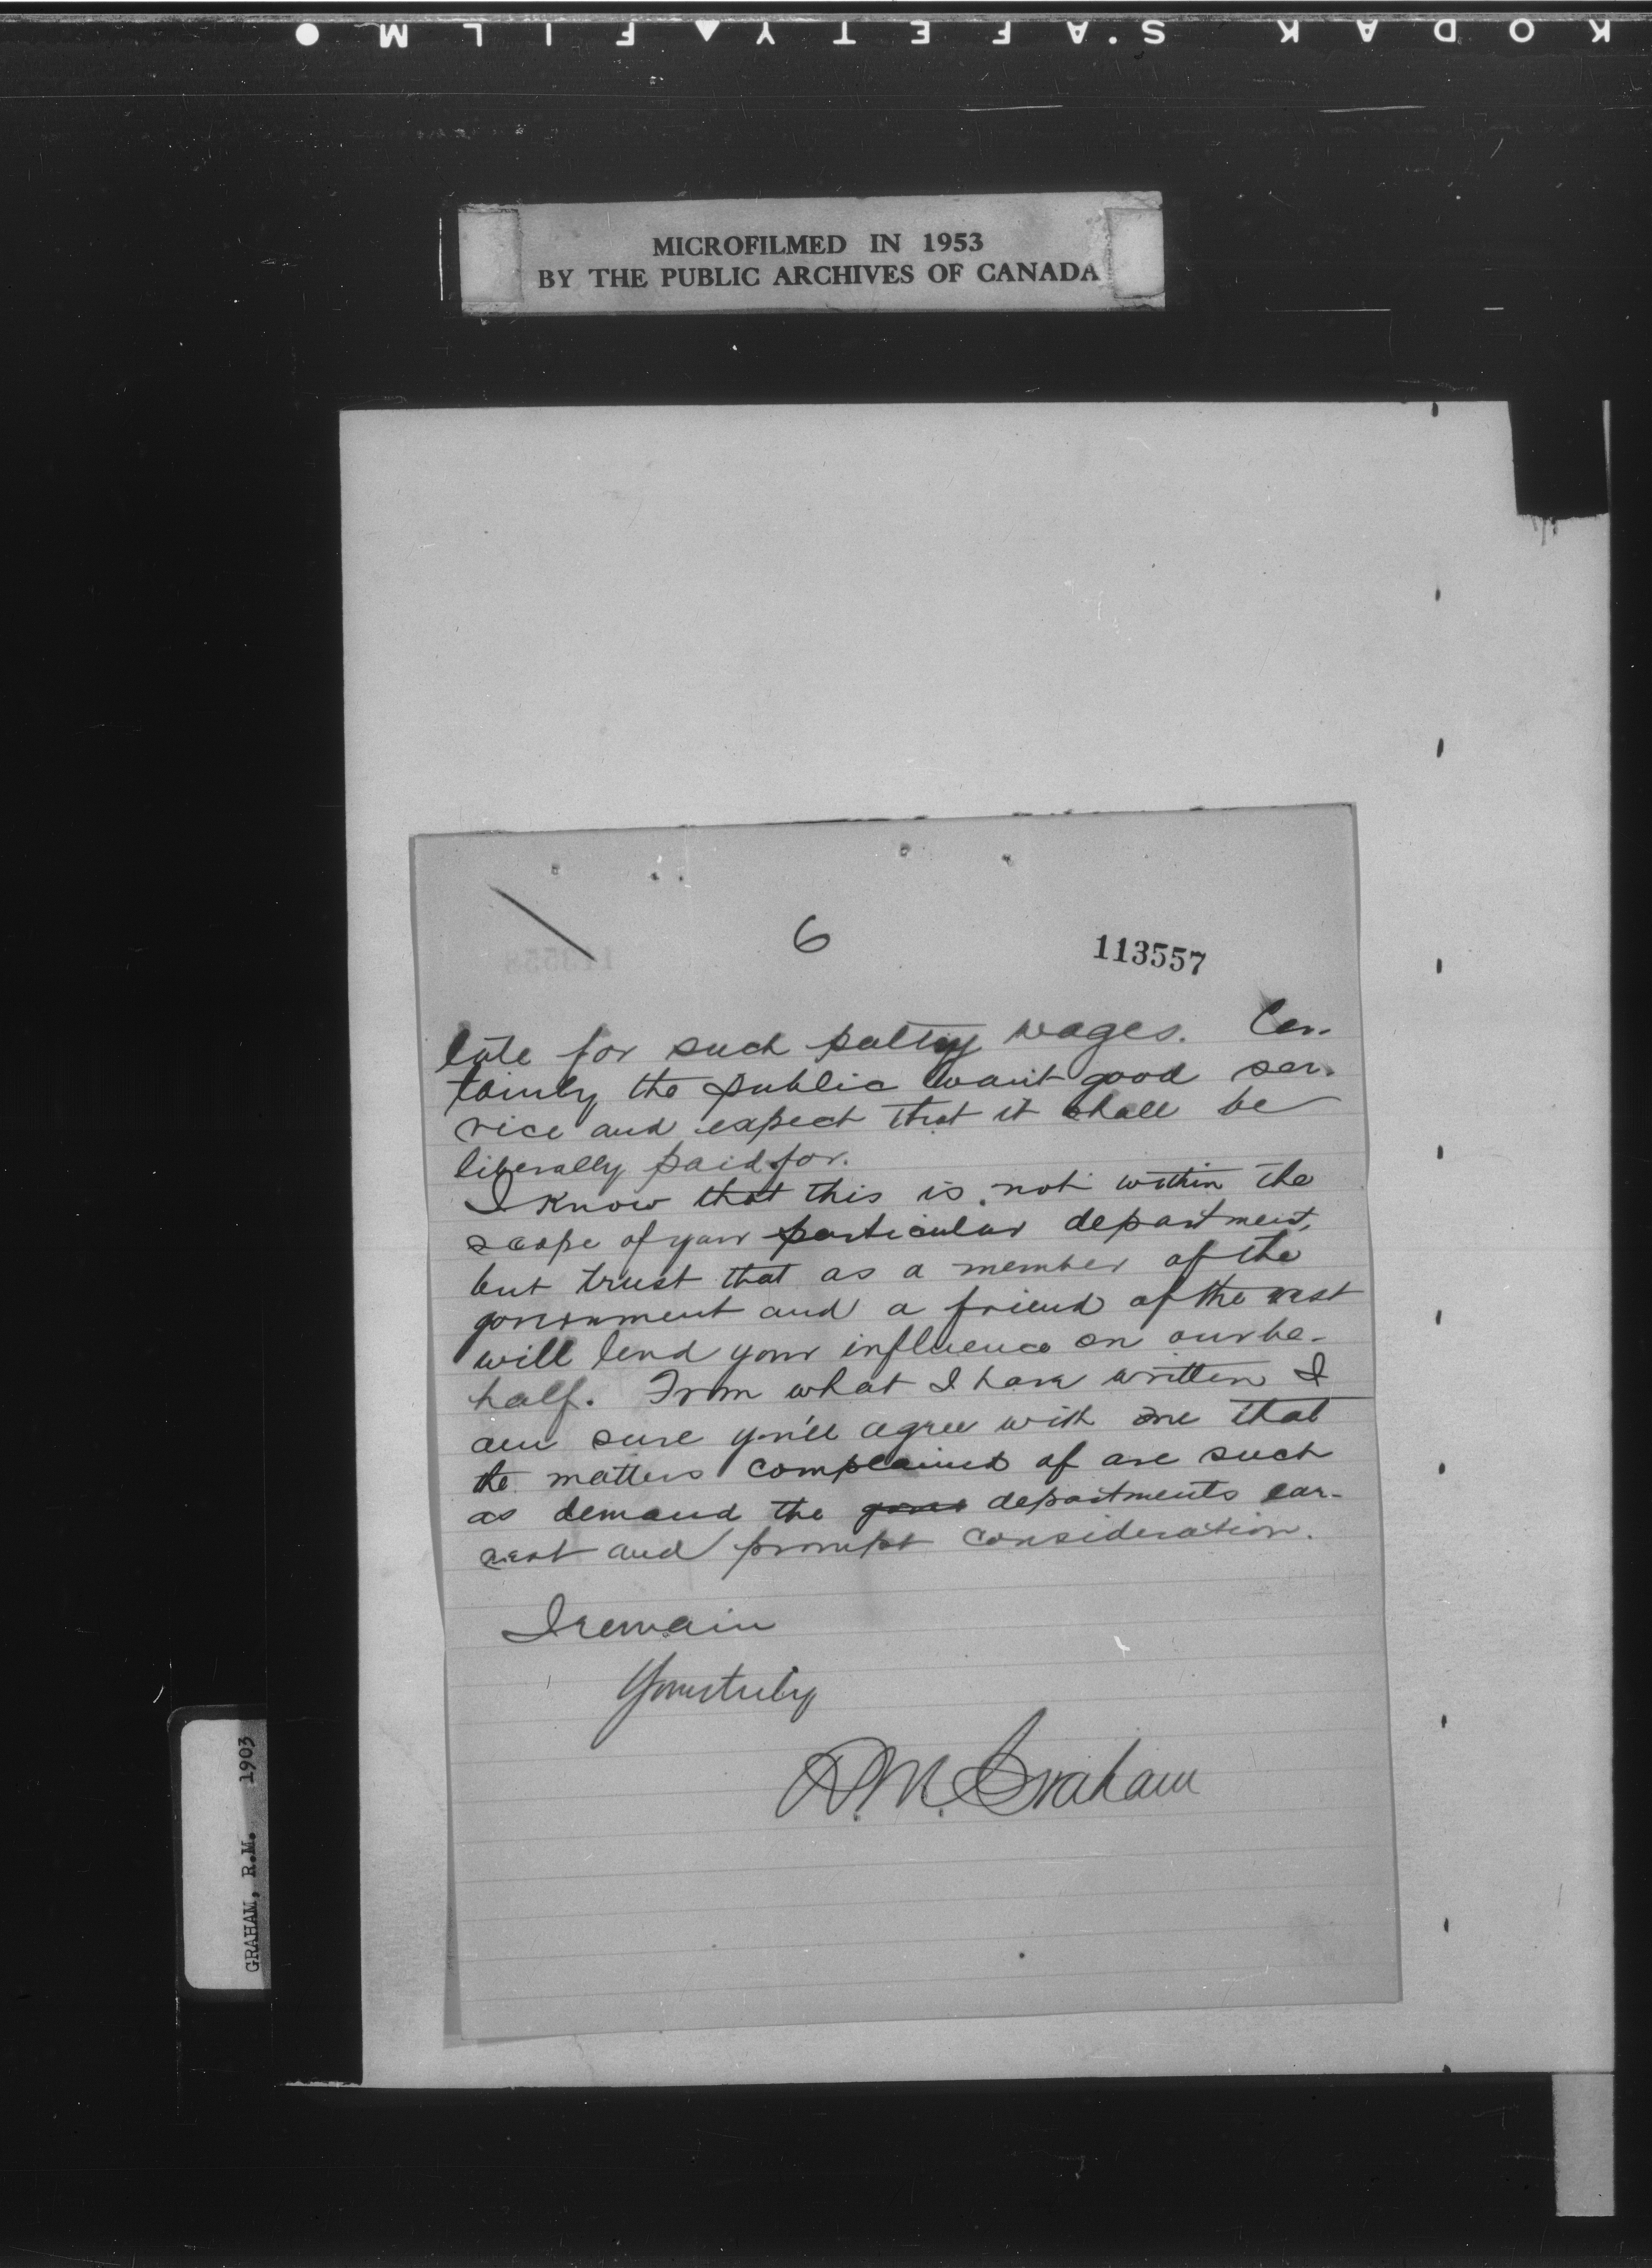 KODAK S.AFETY▲FILM●
MICROFILMED IN 1953
BY THE PUBLIC ARCHIVES OF CANADA
6
113557
late for such paltry wages. Cer-
tainly the public want good ser-
vice and expect that it shall be
liberally paid for.
I know that this is not within the
scope of your particular department,
but trust that as a member of the
government and a friend of the west
will lend your influence on our be-
half. From what I have written I
am sure you'll agree with me that
the matters complained of are such
as demand the departments ear-
nest and prompt consideration.
I remain
Yours truly
R.M. Graham
GRAHAM, R.M. 1903